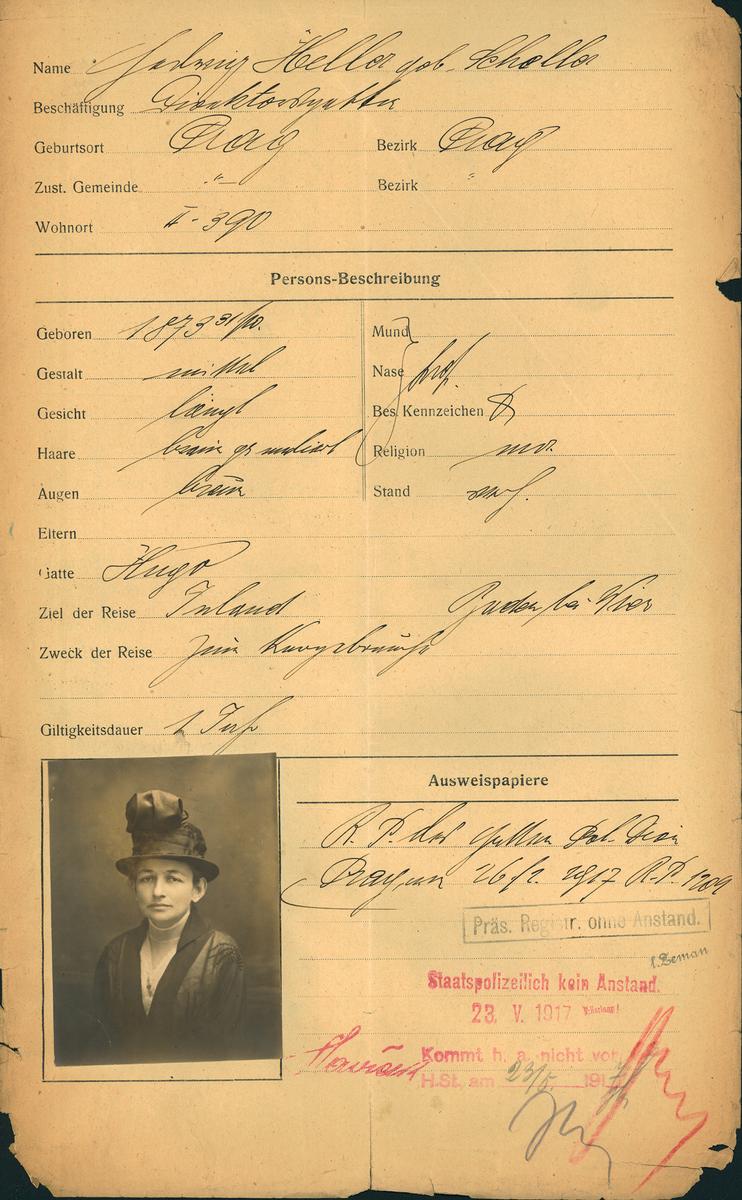 Name Hedwig Heller geb. Scholler
Beschäftigung Direktorsgattin
Geburtsort Prag Bezirk Prag
Zust. Gemeinde -"- Bezirk "
Wohnort II - 390
Persons-Beschreibung
Geboren 1873 31/10. Mund
Gestalt mittel Nase prop.
Gesicht längl Bes Kennzeichen
Haare braun gr meliert Religion mos.
Augen braun Stand verh.
Eltern
Gatte Hugo
Ziel der Reise Inland Baden bei Wien
Zweck der Reise zum Kurgebrauche
Giltigkeitsdauer 1 Jahr
Ausweispapiere
R. P. des Gatten Pol. Dion
Prag vom 26/2. 1917 R. P. 1209
Präs. Registr. ohne Anstand.
Zeman
Staatspolizeilich kein Anstand.
23. V. 1917
Kommt h. a. nicht vor
H.St. am 23/5. 1917